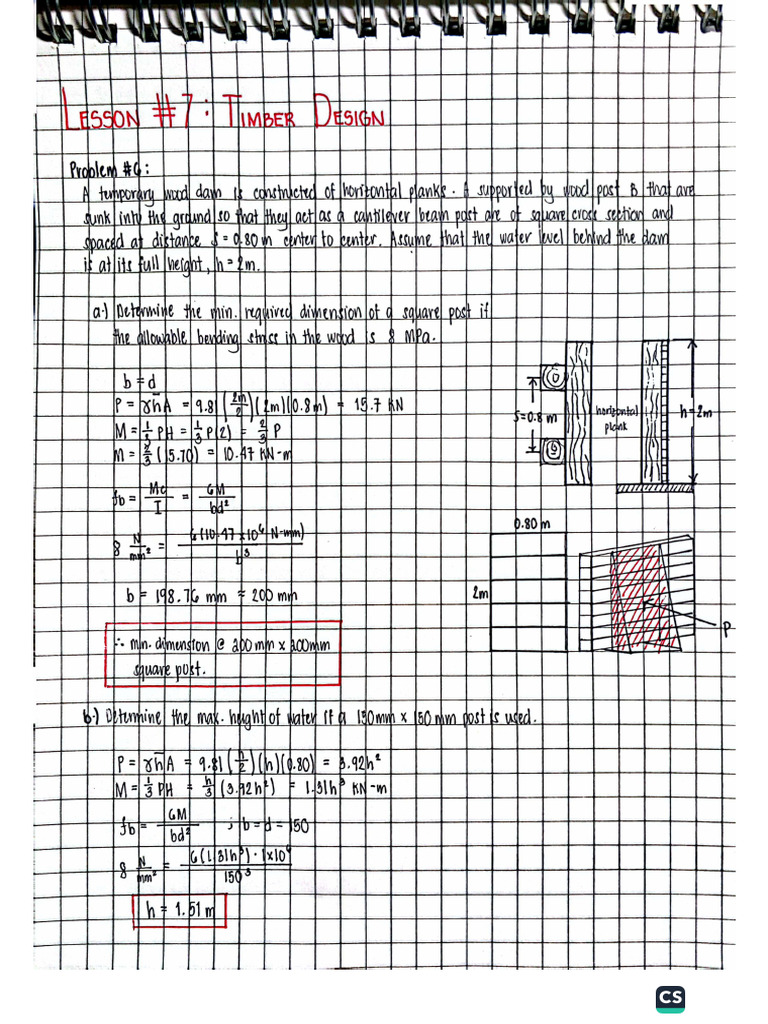 LESSON #7: TIMBER DESIGN
Problem #6:
A temporary wood dam is constructed of horizontal planks. A supported by wood post B that are
sunk into the ground so that they act as a cantilever beam post are of square cross section and
spaced at distance S=0.80 m center to center. Assume that the water level behind the dam
is at its full height, h=2m.
a.) Determine the min. required dimension of a square post if
the allowable bending stress in the wood is 8 MPa.
b = d
P = γh̄A = 9.81 (2m/2) (2m)(0.8m) = 15.7 KN
M = 1/3 PH = 1/3 P(2) = 2/3 P
M = 2/3 (15.70) = 10.47 KN-m
fb = Mc/I = 6M/bd²
8 N/mm² = 6(10.47 x10⁶ N-mm)/b³
b = 198.76 mm ≈ 200 mm
∴ min. dimension @ 200 mm x 200mm
square post.
S=0.8 m
horizontal
plank
h=2m
0.80 m
2m
P
b.) Determine the max. height of water if a 150mm x 150 mm post is used.
P = γh̄A = 9.81 (h/2)(h)(0.80) = 3.92h²
M = 1/3 PH = h/3 (3.92h²) = 1.31h³ KN-m
fb = 6M/bd² ; b=d=150
8 N/mm² = 6(1.31h³)·1x10⁶/150³
h = 1.51 m
CS